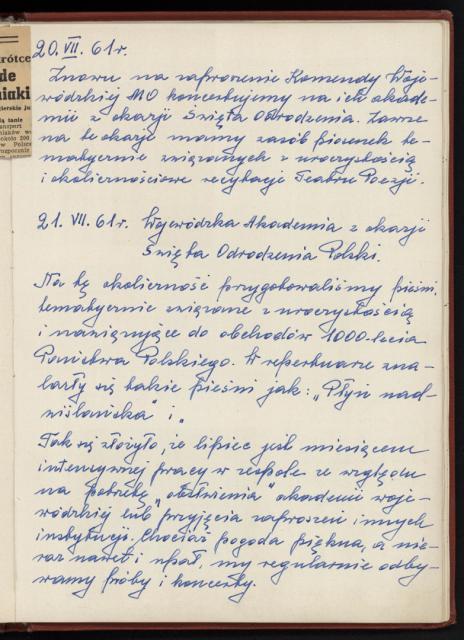 krótce
de
niaki
gierskie ju
ą tanie
ansport
niaków w
około 200
w Polsce
rozpocznie
20. VII. 61 r.
Znowu na zaproszenie Komendy Woje-
wódzkiej MO koncertujemy na ich akade-
mii z okazji Święta Odrodzenia. Zawsze
na te okazje mamy zasób piosenek te-
matycznie związanych z uroczystością
i okolicznościowe recytacje Teatru Poezji.
21. VII. 61 r. Wojewódzka Akademia z okazji
Święta Odrodzenia Polski.
Na tę okoliczność przygotowaliśmy pieśni,
tematycznie związane z uroczystością
i nawiązujące do obchodów 1000-lecia
Państwa Polskiego. W repertuarze zna-
lazły się takie pieśni jak: „Płyń nad-
wiślańska" i „
Tak się złożyło, że lipiec jest miesiącem
intensywnej pracy w zespole ze względu
na potrzebę „obsłużenia" akademii woje-
wódzkiej lub przyjęcia zaproszeń innych
instytucji. Chociaż pogoda piękna, a nie-
raz nawet i upał, my regularnie odby-
wamy próby i koncerty.